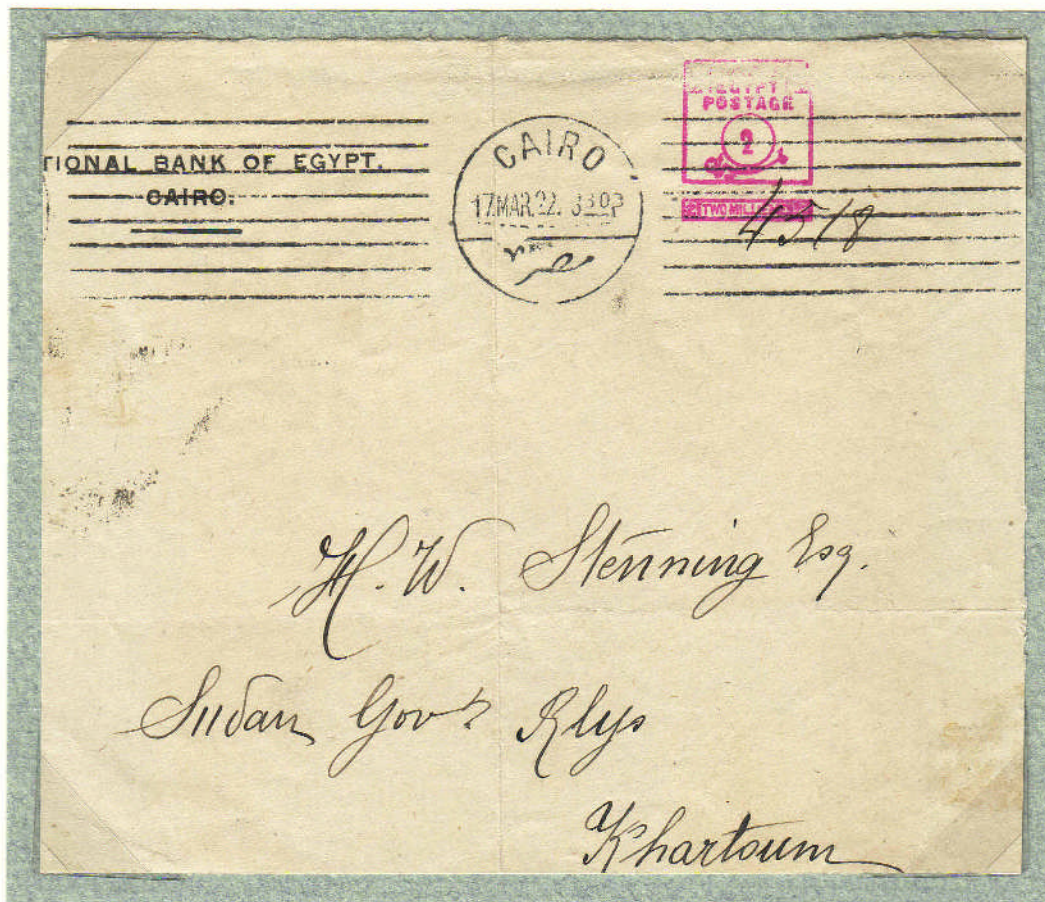 TIONAL BANK OF EGYPT.
CAIRO.
CAIRO
17.MAR.22. 330P
مصر
EGYPT
POSTAGE
2
TWO MILL
4518
H. W. Stenning Esq.
Sudan Govt Rlys
Khartoum